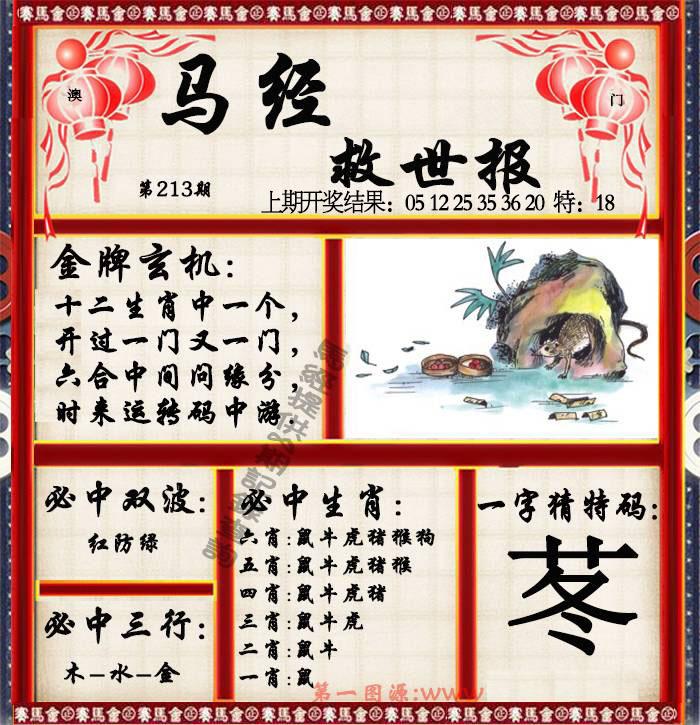 金馬會賽金馬會賽金馬會賽金馬會賽金馬會賽
澳
门
马经
救世报
第213期
上期开奖结果：05 12 25 35 36 20 特：18
金牌玄机：
十二生肖中一个，
开过一门又一门，
六合中间问缘分，
时来运转码中游.
必中双波：
红防绿
必中三行：
木–水–金
必中生肖：
六肖:鼠牛虎猪猴狗
五肖:鼠牛虎猪猴
四肖:鼠牛虎猪
三肖:鼠牛虎
二肖:鼠牛
一肖:鼠
一字猜特码：
苳
第一图源:www